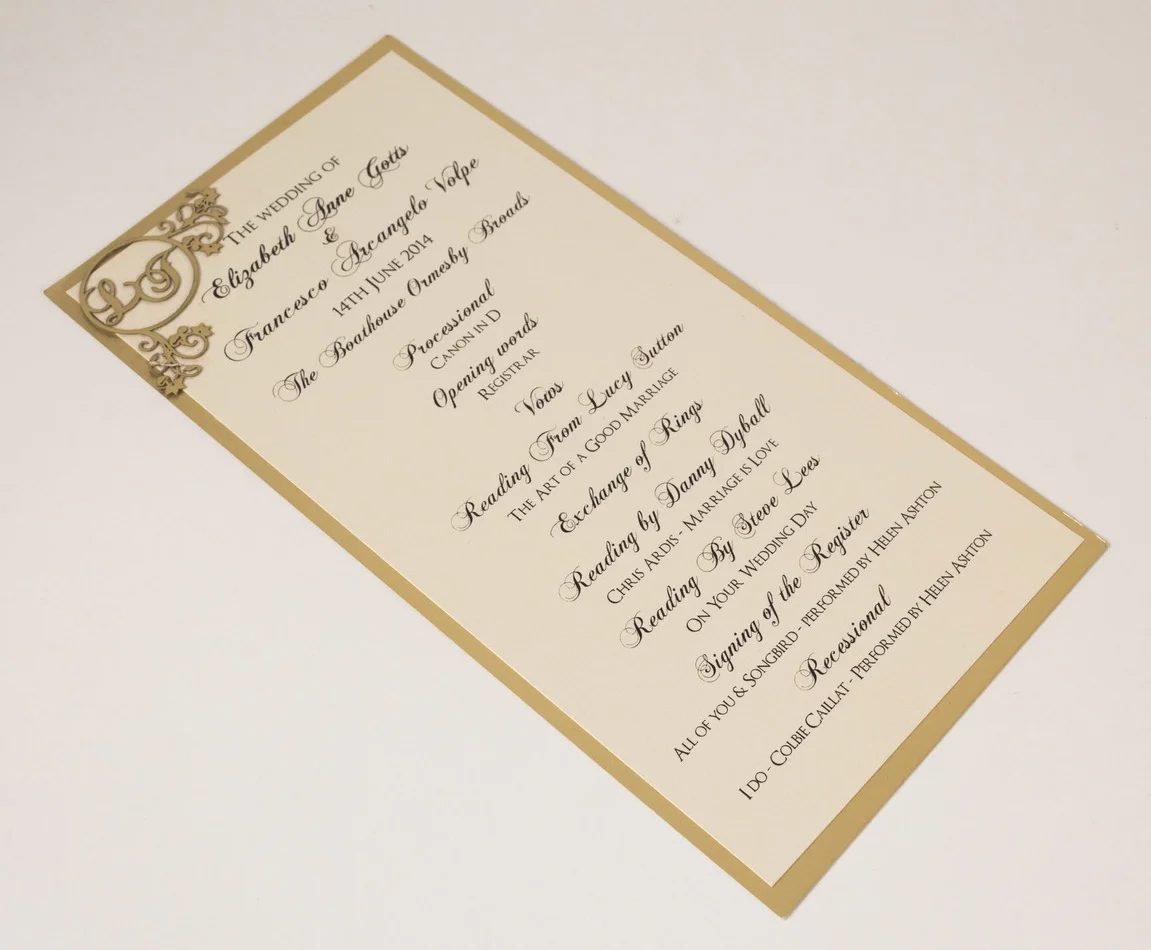 The wedding of
Elizabeth Anne Gotts
&
Francesco Arcangelo Volpe
14th June 2014
The Boathouse Ormesby Broads
Processional
Canon in D
Opening words
Registrar
Vows
Reading From Lucy Sutton
The Art of a Good Marriage
Exchange of Rings
Reading by Danny Dyball
Chris Ardis - Marriage is Love
Reading By Steve Lees
On Your Wedding Day
Signing of the Register
All of you & Songbird - performed by Helen Ashton
Recessional
I do - Colbie Caillat - Performed by Helen Ashton